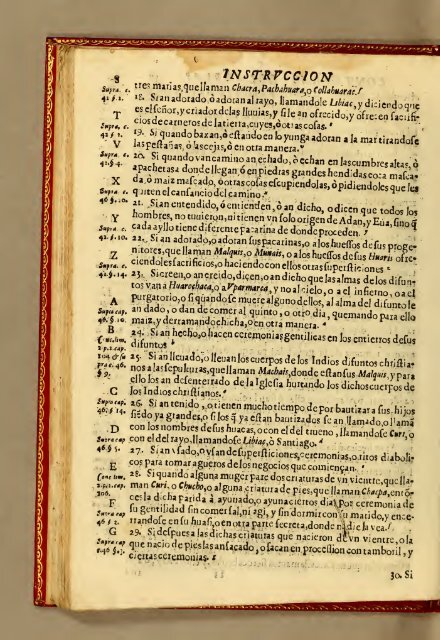 8 INSTRVCCION
tres marias, que llaman Chacra, Pachahuara, o Collahuarac.
18. Si an adorado, ò adoran al rayo, llamandole Libiac, y diciendo que
es el señor, y criador de las lluuias, y si le an ofrecido, y ofrecen sacrifi-
cios de carneros de la tierra, cuyes, ò otras cosas.
19. Si quando baxan, ò estando en lo yunga adoran a la mar tirandose
las pestañas, ò las cejas, ò en otra manera.
20. Si quando van camino an echado, ò echan en las cumbres altas, ò
apachetas donde llegan, ó en piedras grandes hendidas coca masca-
da, ò maiz mascado, ò otras cosas escupiendolas, ò pidiendoles que les
quiten el cansancio del camino.
21. Si an entendido, ó entienden, ò an dicho, o dicen que todos los
hombres, no tuuieron, ni tienen vn solo origen de Adan, y Eua, sino q̃
cada ayllo tiene diferente pacarina de donde proceden.
22. Si an adorado, o adoran sus pacarinas, o a los huessos de sus proge-
nitores, que llaman Malquis, o Munais, o a los huessos de sus Huaris ofre-
ciendoles sacrificios, o haciendo con ellos otras supersticiones
23. Si creen, o an creido, dicen, o an dicho que las almas de los difun-
tos van a Huarochaca, o Vpamarca, y no al cielo, o a el infierno, o a el
purgatorio, o si quando se muere alguno dellos, al alma del difunto le
an dado, o dan de comer al quinto, o otro dia, quemando para ello
maiz, y derramando chicha, o en otra manera.
24. Si an hecho, o hacen ceremonias gentilicas en los entierros de sus
difuntos
25. Si an lleuado, o lleuan los cuerpos de los Indios difuntos christia-
nos a las sepulturas, que llaman Machais, donde estan sus Malquis, y para
ello los an desenterrado de la Iglesia hurtando los dichos cuerpos de
los Indios christianos.
26. Si an tenido, o tienen mucho tiempo de por bautizar a sus hijos
siẽdo ya grandes, o si los q̃ ya estan bautizados se an llamado, o llamã
con los nombres de sus huacas, o con el del trueno, llamandose Curi, o
con el del rayo, llamandose Libiac, ò Santiago.
27. Si an vsado, o vsan de supersticiones, ceremonias, o ritos diaboli-
cos para tomar agueros de los negocios que comiençan.
28. Si quando alguna muger pare dos criaturas de vn vientre, que lla-
man Curi, o Chucho, o alguna criatura de pies, que llaman Chacpa, entõ-
ces la dicha parida à ayunado, o ayuna ciertos dias por ceremonia de
su gentilidad sin comer sal, ni agi, y sin dormir con su marido, y ence-
rrandose en su huasi, o en otra parte secreta, donde nadie la vea.
29. Si despues a las dichas criaturas que nacieron de vn vientre, o la
que nacio de pies las an sacado, o sacan en procession con tamboril, y
ciertas ceremonias.
30. Si
S
Supra. c.
42 §. 2.
T
Supra. c.
42 §. 2.
V
Supra. c.
42. §. 4.
X
Supra. c.
46 §. 10.
Y
Supra. c.
42. §. 10.
Z
Supra. c.
42. §. 14.
A
Supra cap.
46. §. 10.
B
C
Supra cap.
46. §. 14.
D
Supra cap
46 § 5.
E
F
Supra cap
G
Supra cap